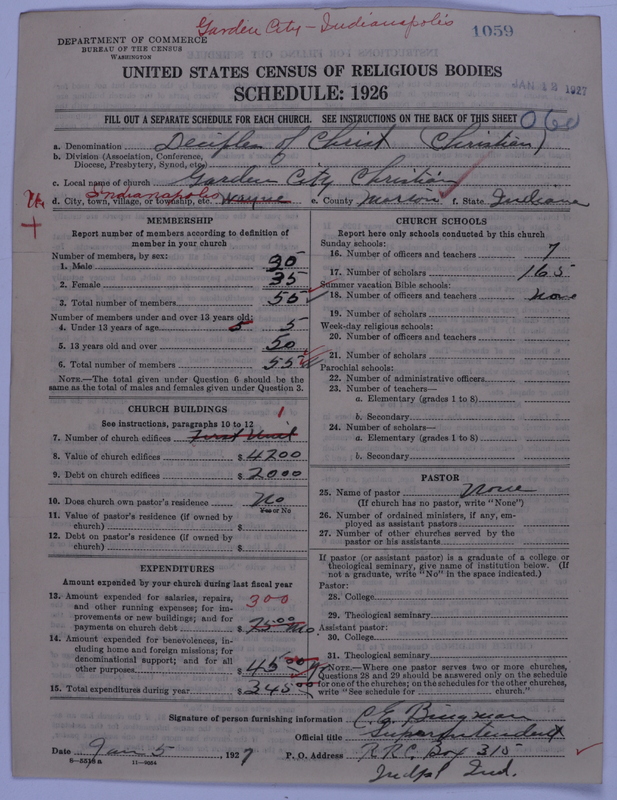 Garden City - Indianapolis
1059
DEPARTMENT OF COMMERCE
BUREAU OF THE CENSUS
WASHINGTON
UNITED STATES CENSUS OF RELIGIOUS BODIES
SCHEDULE: 1926
JAN 12 1927
FILL OUT A SEPARATE SCHEDULE FOR EACH CHURCH. SEE INSTRUCTIONS ON THE BACK OF THIS SHEET
060
a. Denomination Deciples of Christ (Christian)
b. Division (Association, Conference, Diocese, Presbytery, Synod, etc.)
c. Local name of church Garden City Christian
Indianapolis
d. City, town, village, or township, etc. Wayne e. County Marion f. State Indiana
MEMBERSHIP
Report number of members according to definition of member in your church
Number of members, by sex:
1. Male 20
2. Female 35
3. Total number of members 55
Number of members under and over 13 years old:
4. Under 13 years of age 5 5
5. 13 years old and over 50
6. Total number of members 55
NOTE.—The total given under Question 6 should be the same as the total of males and females given under Question 3.
CHURCH BUILDINGS
See instructions, paragraphs 10 to 12
1
7. Number of church edifices First Unit
8. Value of church edifices $ 4200
9. Debt on church edifices $ 2000
10. Does church own pastor's residence No
Yes or No
11. Value of pastor's residence (if owned by church) $
12. Debt on pastor's residence (if owned by church) $
EXPENDITURES
Amount expended by your church during last fiscal year
13. Amount expended for salaries, repairs, and other running expenses; for improvements or new buildings; and for payments on church debt 300 $ 25 00 Mo.
14. Amount expended for benevolences, including home and foreign missions; for denominational support; and for all other purposes $ 45 00
15. Total expenditures during year $ 345 00
CHURCH SCHOOLS
Report here only schools conducted by this church
Sunday schools:
16. Number of officers and teachers 7
17. Number of scholars 165
Summer vacation Bible schools:
18. Number of officers and teachers None
19. Number of scholars
Week-day religious schools:
20. Number of officers and teachers
21. Number of scholars
Parochial schools:
22. Number of administrative officers
23. Number of teachers—
a. Elementary (grades 1 to 8)
b. Secondary
24. Number of scholars—
a. Elementary (grades 1 to 8)
b. Secondary
PASTOR
25. Name of pastor None
(If church has no pastor, write "None")
26. Number of ordained ministers, if any, employed as assistant pastors
27. Number of other churches served by the pastor or his assistants
If pastor (or assistant pastor) is a graduate of a college or theological seminary, give name of institution below. (If not a graduate, write "No" in the space indicated.)
Pastor:
28. College
29. Theological seminary
Assistant pastor:
30. College
31. Theological seminary
NOTE.—Where one pastor serves two or more churches, Questions 28 and 29 should be answered only on the schedule for one of the churches; on the schedules for the other churches, write "See schedule for church."
Signature of person furnishing information C. E. Bingman
Official title Superintendent
Date Jan 5, 1927 P. O. Address R.R.C. Box 315
Indpl Ind.
6—5518a 11—9084